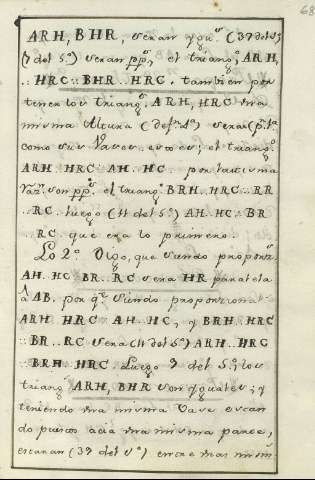 68
ARH, BHR, seran ygu.s (37 del 1º)
(7 del 5º) seran pp.s, el triang.o ARH,
.. HRC :: BHR .. HRC, tambien por
tener los triang.s ARH, HRC una
misma Altura (def.n 4ª) seran (p.r 1ª
como sus Vases, esto es; el triang.o
ARH .. HRC :: AH .. HC por la misma
raz.n son pp.s el triang.o BRH .. HRC :: BR
.. RC luego (11 del 5º) AH .. HC :: BR
.. RC que era lo primero.
Lo 2º Digo, que siendo proporz.s
AH .. HC :: BR .. RC sera HR paralela
à AB. por q.e siendo proporzional
ARH .. HRC :: AH .. HC, y BRH .. HRC
:: BR .. RC sera (11 del 5º) ARH .. HRC
:: BRH .. HRC Luego 9 del 5º, los
triang.s ARH, BHR son yguales; y
teniendo una misma Vase estan
do puestos acia una misma parte,
estaran (37 del 1º) entre unas mism